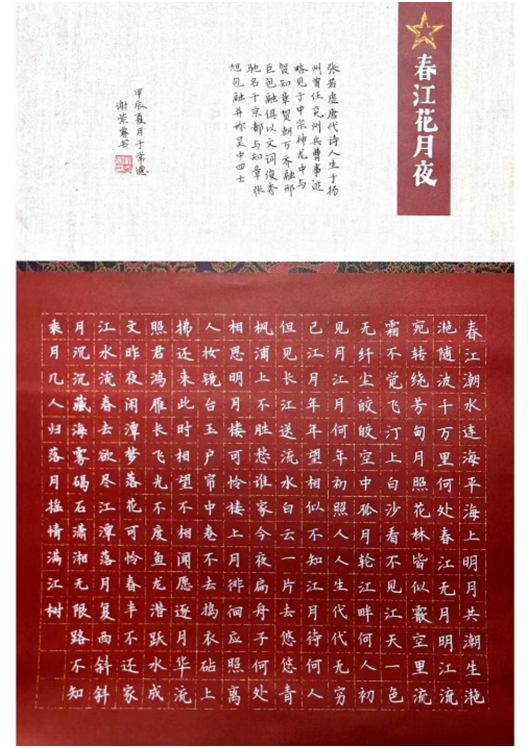 春江花月夜
张若虚唐代诗人生于扬
州曾任兖州兵曹事迹
略见于中宗神龙中与
贺知章贺朝万齐融邢
巨包融俱以文词俊秀
驰名于京都与知章张
旭包融并称吴中四士
甲辰夏月于常德
谢荣书
春江潮水连海平海上明月共潮生滟
滟随波千万里何处春江无月明江流
宛转绕芳甸月照花林皆似霰空里流
霜不觉飞汀上白沙看不见江天一色
无纤尘皎皎空中孤月轮江畔何人初
见月江月何年初照人人生代代无穷
已江月年年望相似不知江月待何人
但见长江送流水白云一片去悠悠青
枫浦上不胜愁谁家今夜扁舟子何处
相思明月楼可怜楼上月徘徊应照离
人妆镜台玉户帘中卷不去捣衣砧上
拂还来此时相望不相闻愿逐月华流
照君鸿雁长飞光不度鱼龙潜跃水成
文昨夜闲潭梦落花可怜春半不还家
江水流春去欲尽江潭落月复西斜斜
月沉沉藏海雾碣石潇湘无限路不知
乘月几人归落月摇情满江树